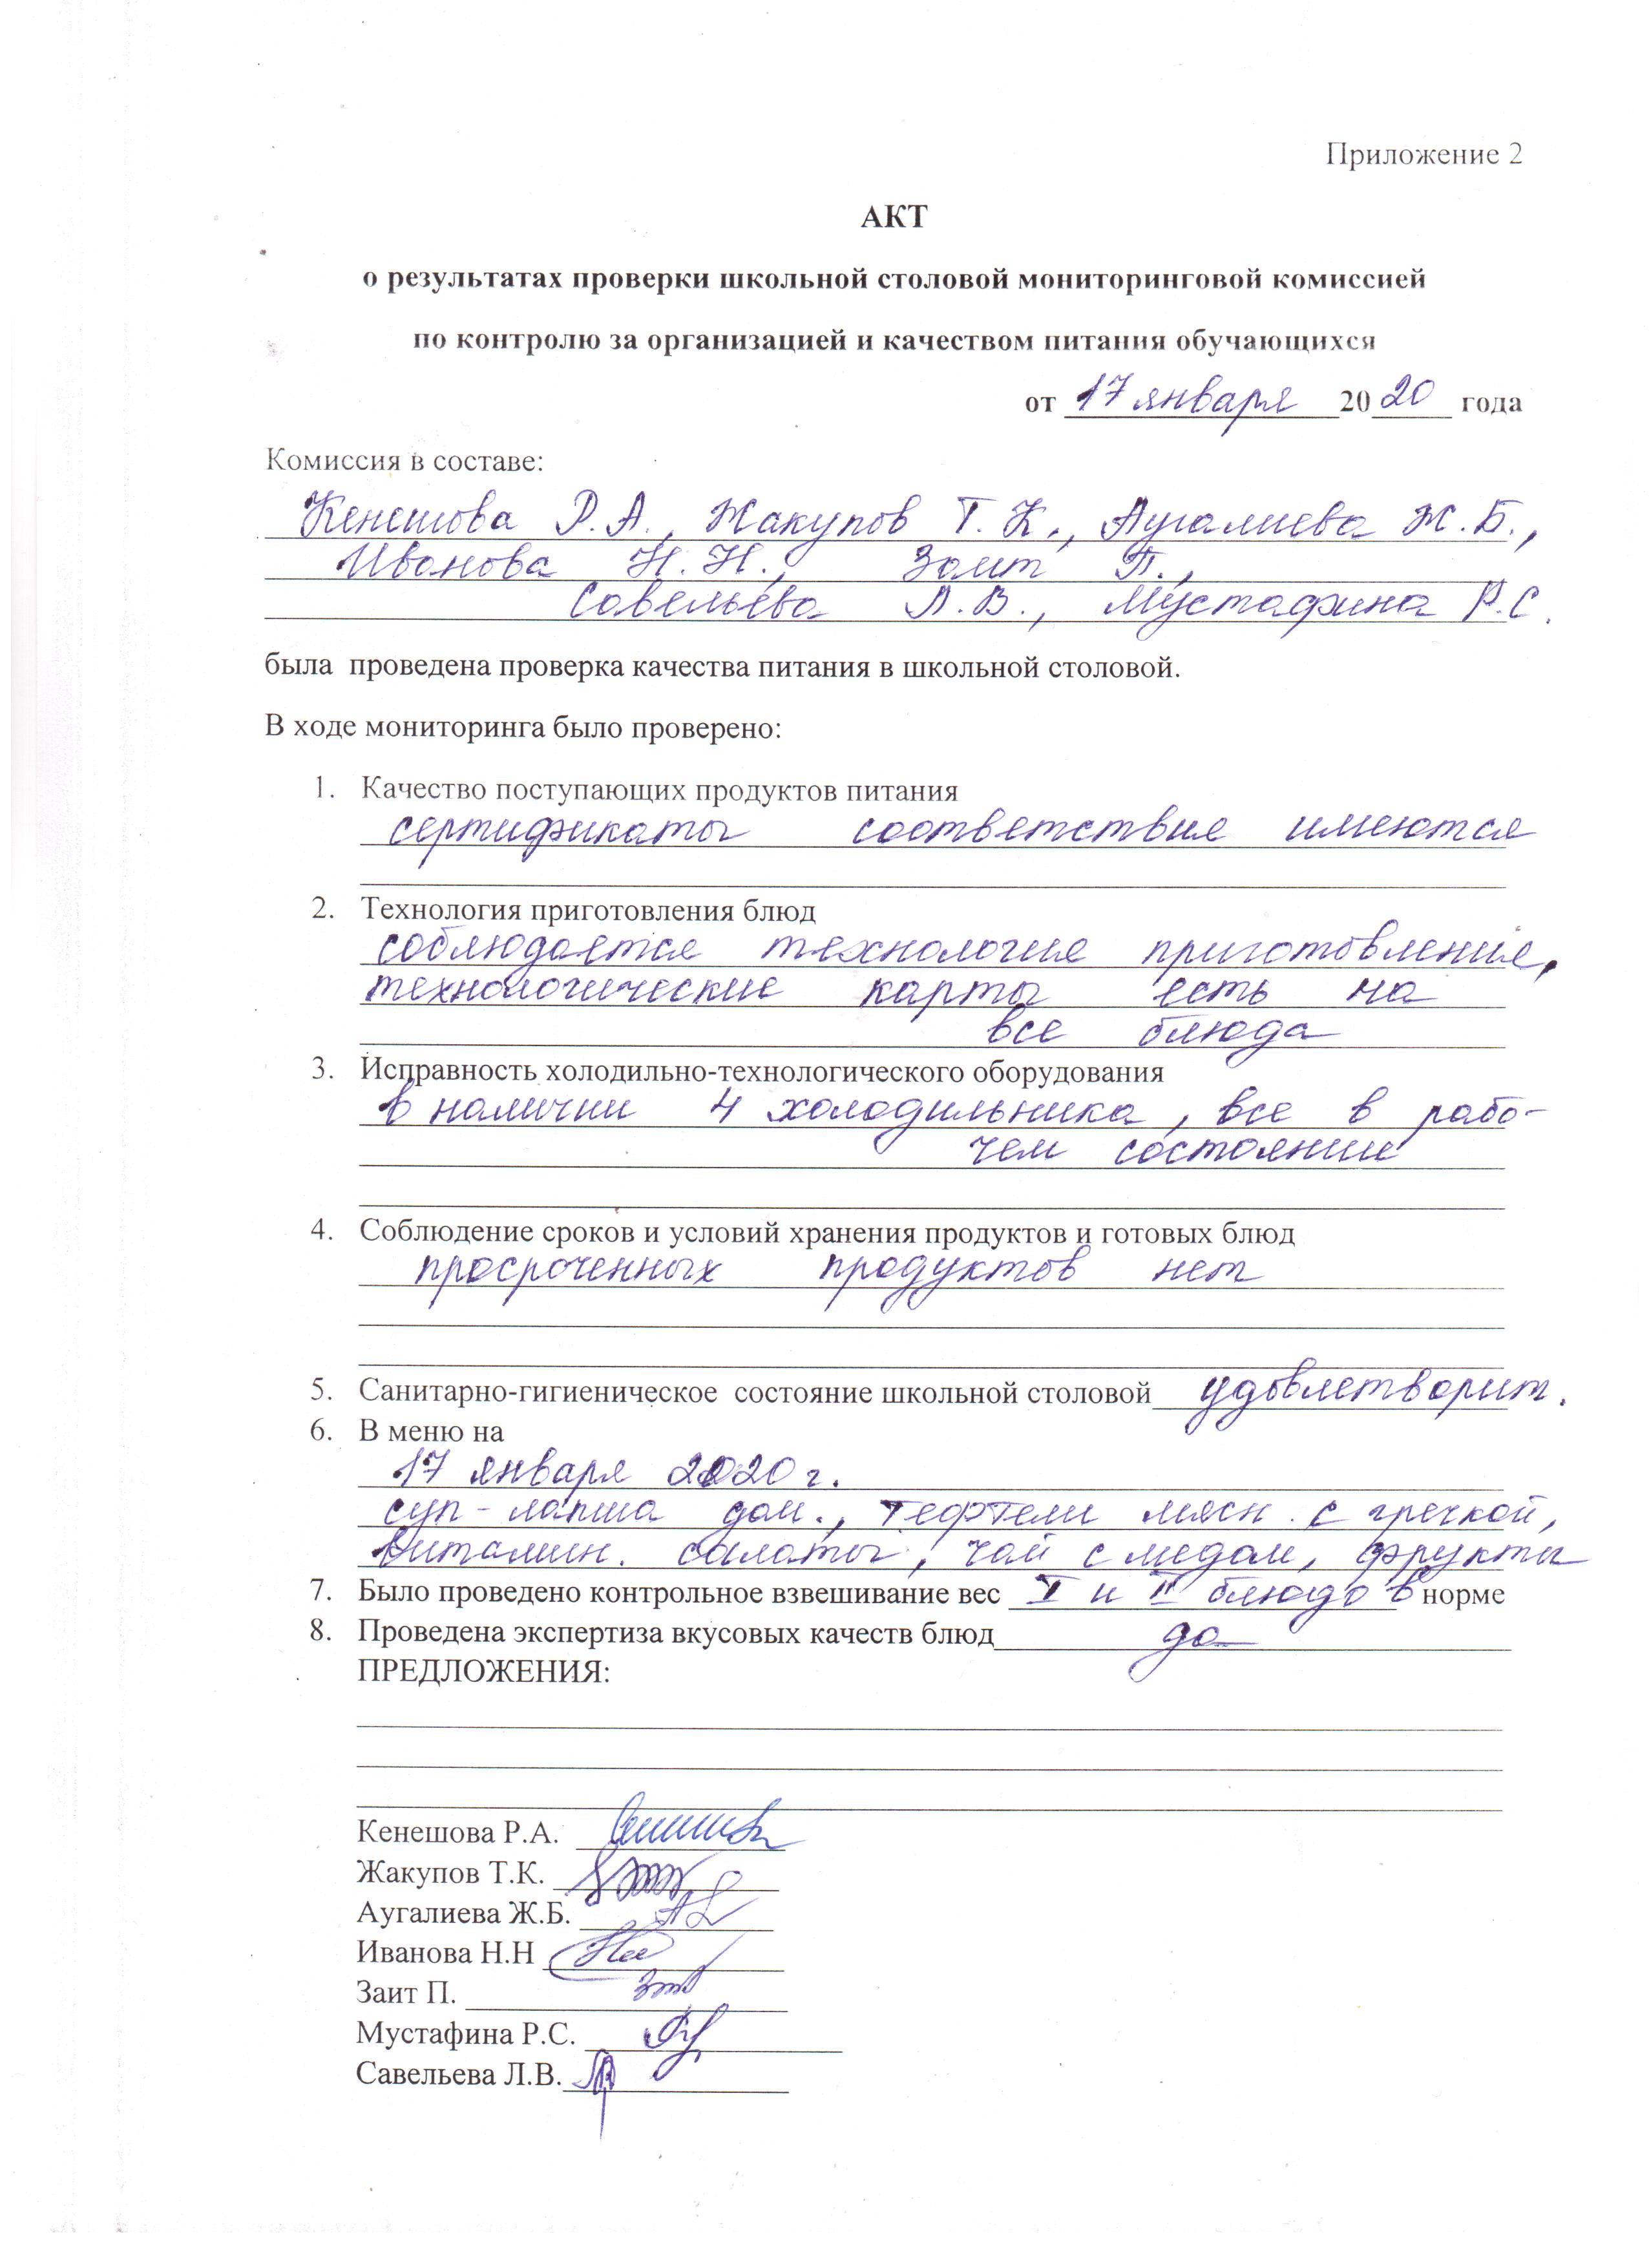 Приложение 2
АКТ
о результатах проверки школьной столовой мониторинговой комиссией
по контролю за организацией и качеством питания обучающихся
от 17 января 2020 года
Комиссия в составе:
Кенешова Р.А., Жакупов Т.К., Аугалиева Ж.Б.,
Иванова Н.Н., Заит П.,
Савельева Л.В., Мустафина Р.С.
была проведена проверка качества питания в школьной столовой.
В ходе мониторинга было проверено:
1. Качество поступающих продуктов питания
сертификаты соответствия имеются
2. Технология приготовления блюд
соблюдается технология приготовления,
технологические карты есть на
все блюда
3. Исправность холодильно-технологического оборудования
в наличии 4 холодильника, все в рабо-
чем состоянии
4. Соблюдение сроков и условий хранения продуктов и готовых блюд
просроченных продуктов нет
5. Санитарно-гигиеническое состояние школьной столовой удовлетворит.
6. В меню на
17 января 2020 г.
суп-лапша дом., тефтели мясн. с гречкой,
витамин. салаты, чай с медом, фрукты
7. Было проведено контрольное взвешивание вес I и II блюдо в норме
8. Проведена экспертиза вкусовых качеств блюд да
ПРЕДЛОЖЕНИЯ:
Кенешова Р.А.
Жакупов Т.К.
Аугалиева Ж.Б.
Иванова Н.Н
Заит П.
Мустафина Р.С.
Савельева Л.В.